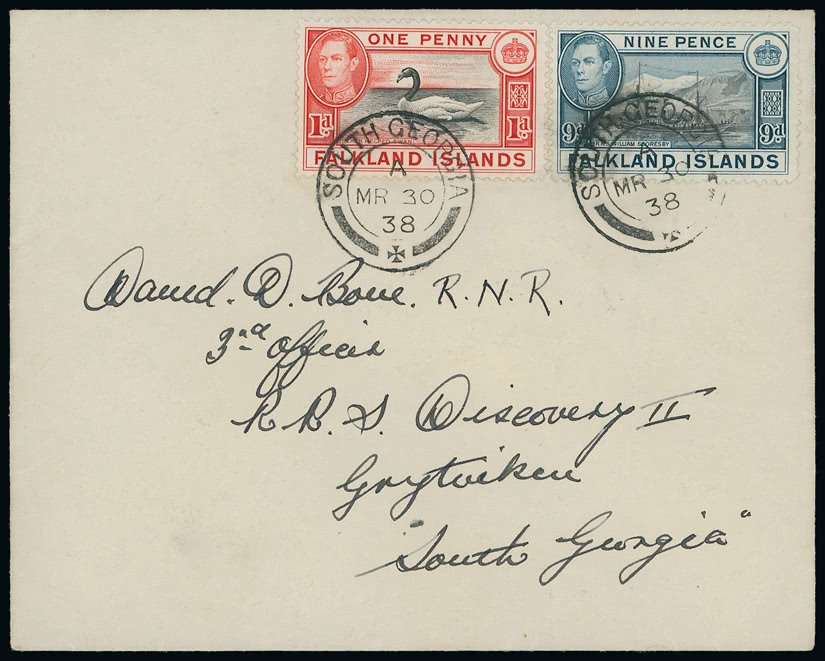 ONE PENNY
1d 1d
FALKLAND ISLANDS
NINE PENCE
9d 9d
R.R.S. WILLIAM SCORESBY
FALKLAND ISLANDS
SOUTH GEORGIA
A
MR 30
38
SOUTH GEORGIA
A
MR 30
38
David. D. Bone. R.N.R.
3rd officer
R R. S. Discovery II
Grytviken
"South Georgia"